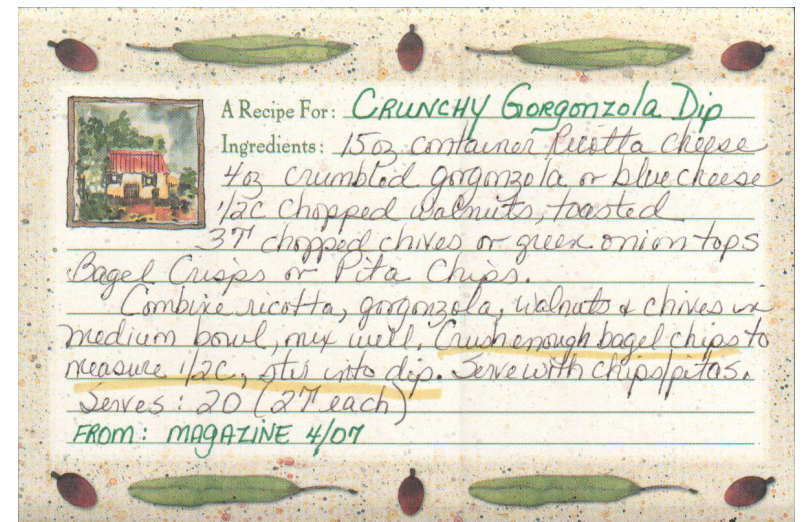 A Recipe For: CRUNCHY Gorgonzola Dip
Ingredients: 15oz container Ricotta cheese
4oz crumbled gorgonzola or blue cheese
1/2C chopped walnuts, toasted
3T chopped chives or green onion tops
Bagel Crisps or Pita Chips.
Combine ricotta, gorgonzola, walnuts & chives in
medium bowl, mix well. Crush enough bagel chips to
measure 1/2C, stir into dip. Serve with chips/pitas.
Serves: 20 (2T each)
FROM: MAGAZINE 4/07